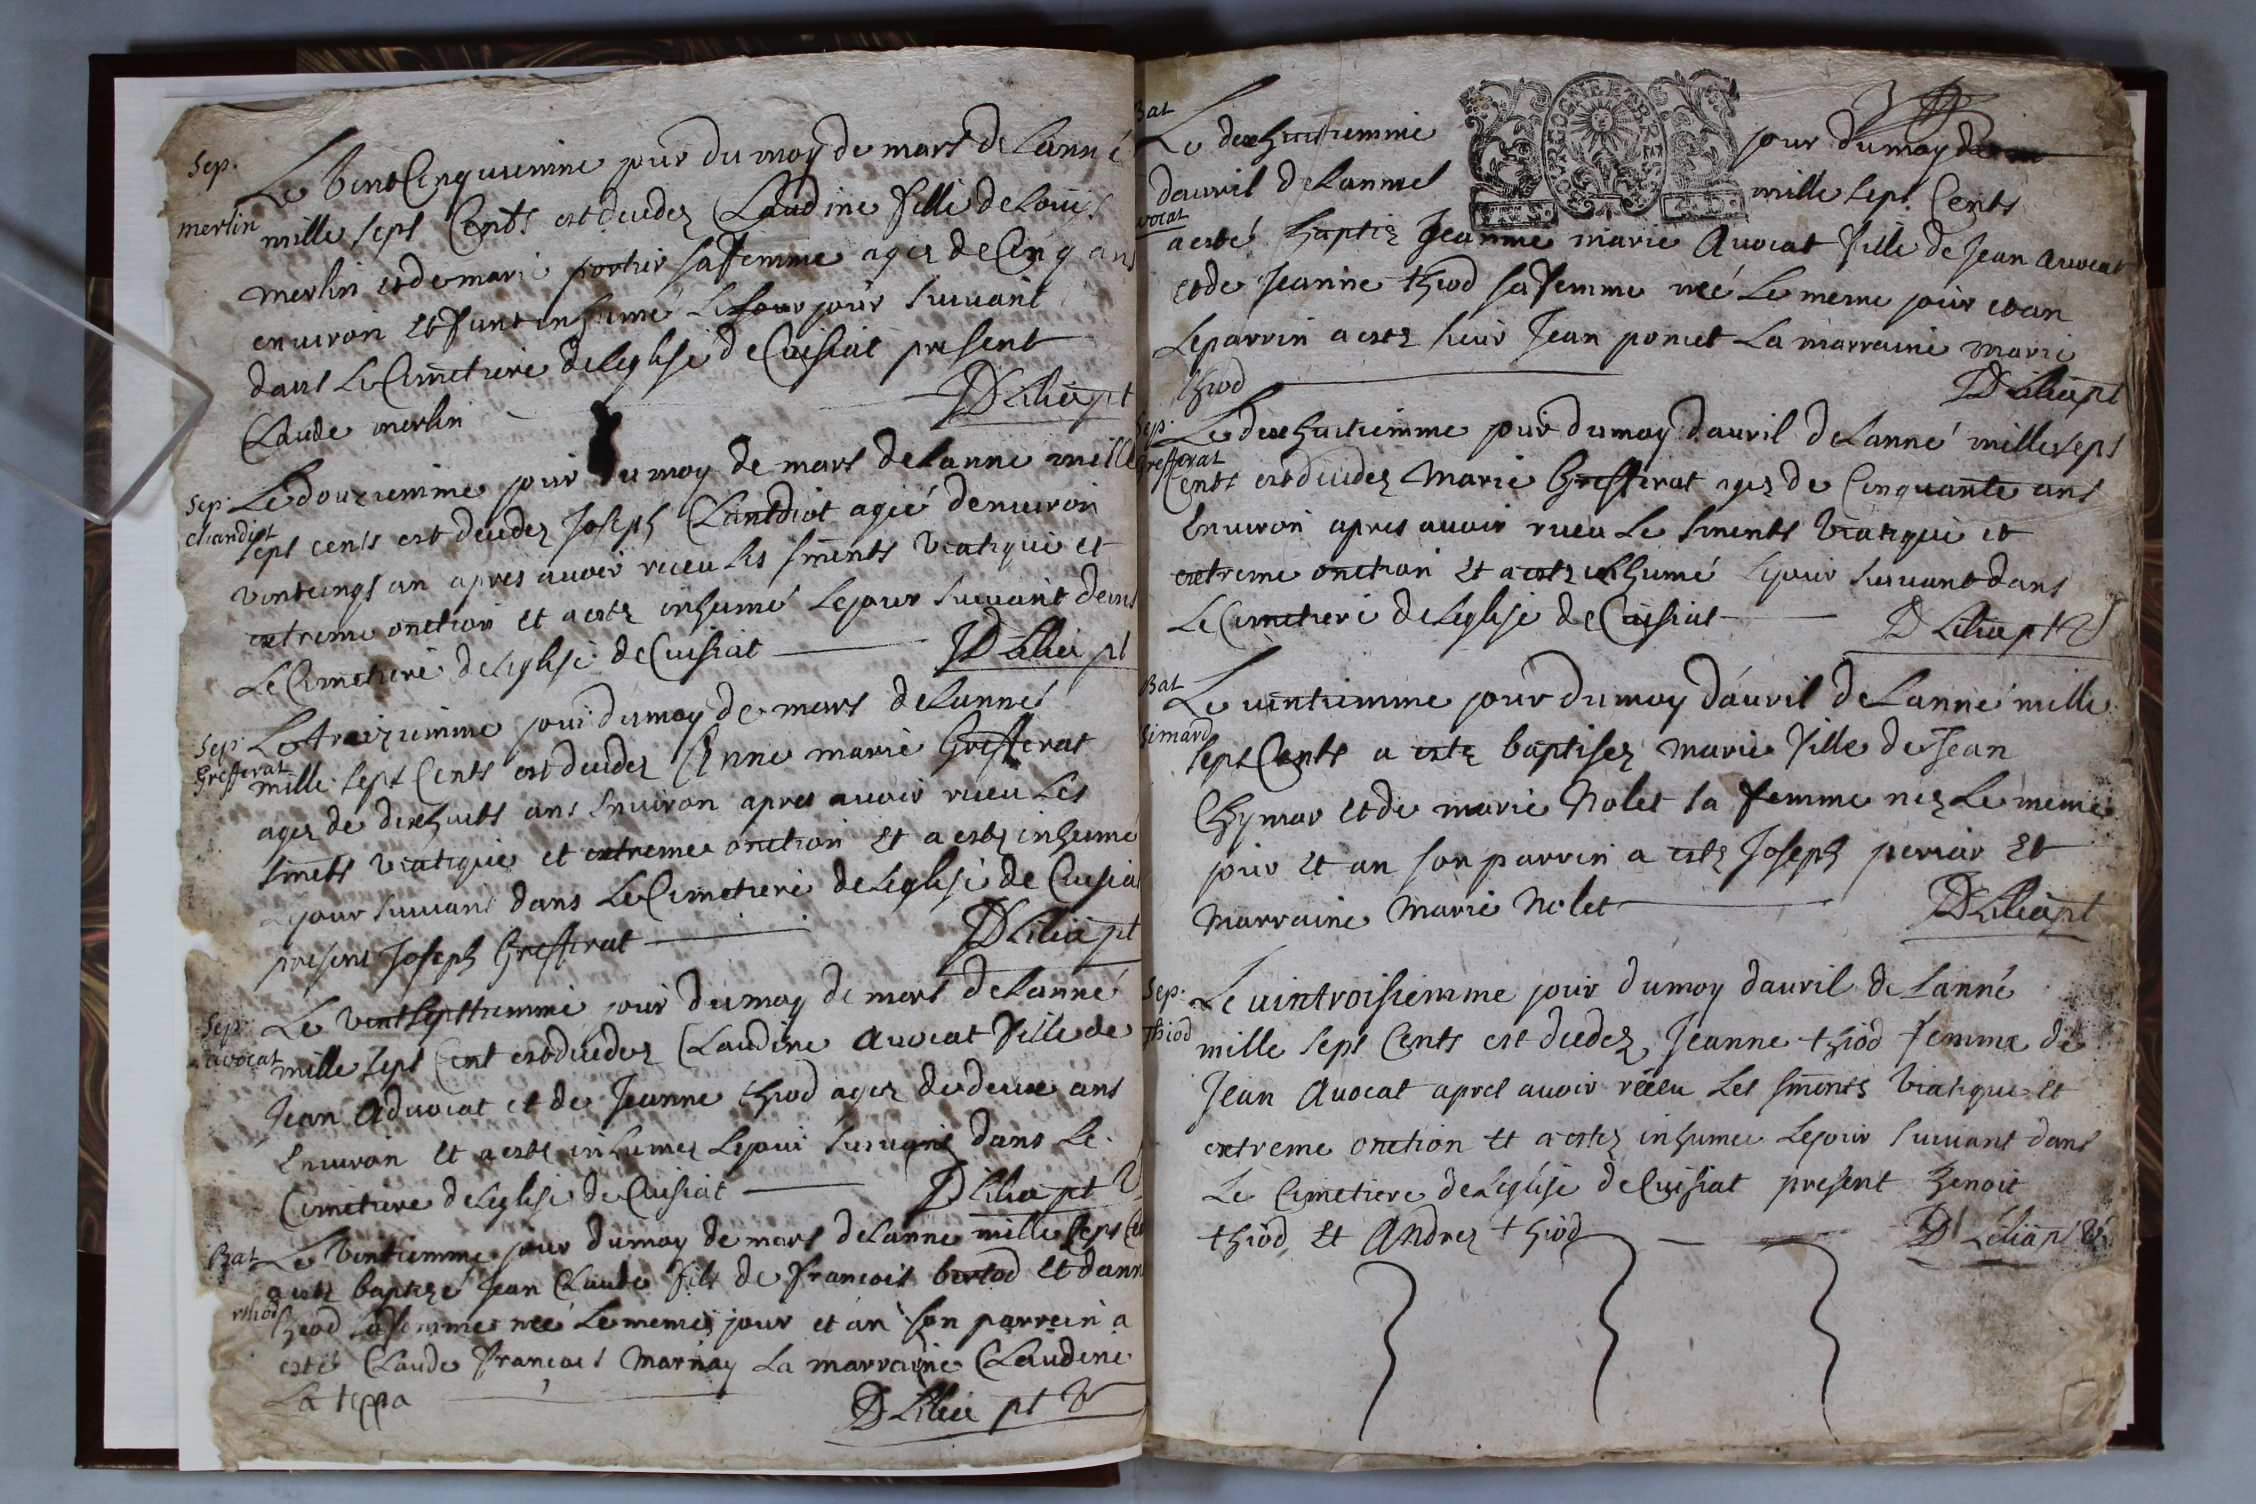 Sep.
merlin
Le vint Cinquiemme jour du moy de mars de Lanné
mille sept Cents est decedez Claudine fille de Louis
merlin et de marie portier sa femme agez de Cinq ans
environ et fut inhumé le jour suivant
dans Le Cimetiere de Leglise de Cuisiat present
Claude merlin
D Lilia pt
Sep.
chandiot
Le douziemme jour du moy de mars de Lanne mille
sept cents est decedez Joseph Chandiot agé denviron
vintcinqs an apres avoir receu les sments viatique et
extreme onction et a estez inhumé le jour suivant dans
Le Cimetiere de Leglise de Cuisiat
D Lilia pt
Sep.
Grefferat
Le treiziemme jour du moy de mars de Lanné
mille sept Cents est decedez Anne marie Grefferat
agez de dixhuits ans environ apres avoir receu Les
sments viatique et extreme onction et a estez inhumé
le jour suivant dans Le Cimetiere de Leglise de Cuisiat
present Joseph Grefferat
D Lilia pt
Sep.
avocat
Le vint septtiemme jour du moy de mars de Lanné
mille sept Cent est decedez Claudine avocat fille de
Jean advocat et de Jeanne thiod agez de deux ans
environ et a estez inhumez le jour suivant dans Le
Cimetiere de Leglise de Cuisiat
D Lilia pt
Bat
Le vintiemme jour du moy de mars de Lanne mille sept Ce
a estez baptizé Jean Claude fils de francois bertod et dann
thiod sa femme neé Le meme jour et an son parrein a
esté Claude francois Marnay La marraine Claudine
La teppa
D Lilia pt
Bat
avocat
Le dexhuitiemme jour du moy
BOURGOGNE ET BRESSE
davril de Lannee mille sept Cents
a esté baptiz Jeanne marie Avocat fille de Jean avocat
et de Jeanne thiod sa femme neé Le meme jour et an
Le parrin a estez sieur Jean poncet La marraine marie
thiod
D Lilia pt
Sep.
Grefferat
Le dexhuitiemme jour du moy davril de Lanné mille sept
Cents est decedez Marie Grefferat agez de Cinquante ans
Environ apres avoir receu Le sments viatique et
extreme onction et a estez inhumé le jour suivant dans
Le Cimetiere de Leglise de Cuisiat
D Lilia pt
Bat
Simard
Le vintiemme jour du moy davril de Lanné mille
sept Cents a estez baptisez marie fille de Jean
Chymar et de marie Nolet sa femme nez Le meme
jour et an son parrin a estez Joseph perrar et
Marraine Marie Nolet
D Lilia pt
Sep.
Thiod
Le vintroisiemme jour du moy davril de Lanné
mille sept Cents est decedez Jeanne thiod femme de
Jean Avocat apres avoir receu Les sments viatique et
extreme onction et a estez inhumee Le jour suivant dans
Le Cimetiere de Leglise de Cuisiat present benoit
thiod et Andrez thiod
D Lilia pt